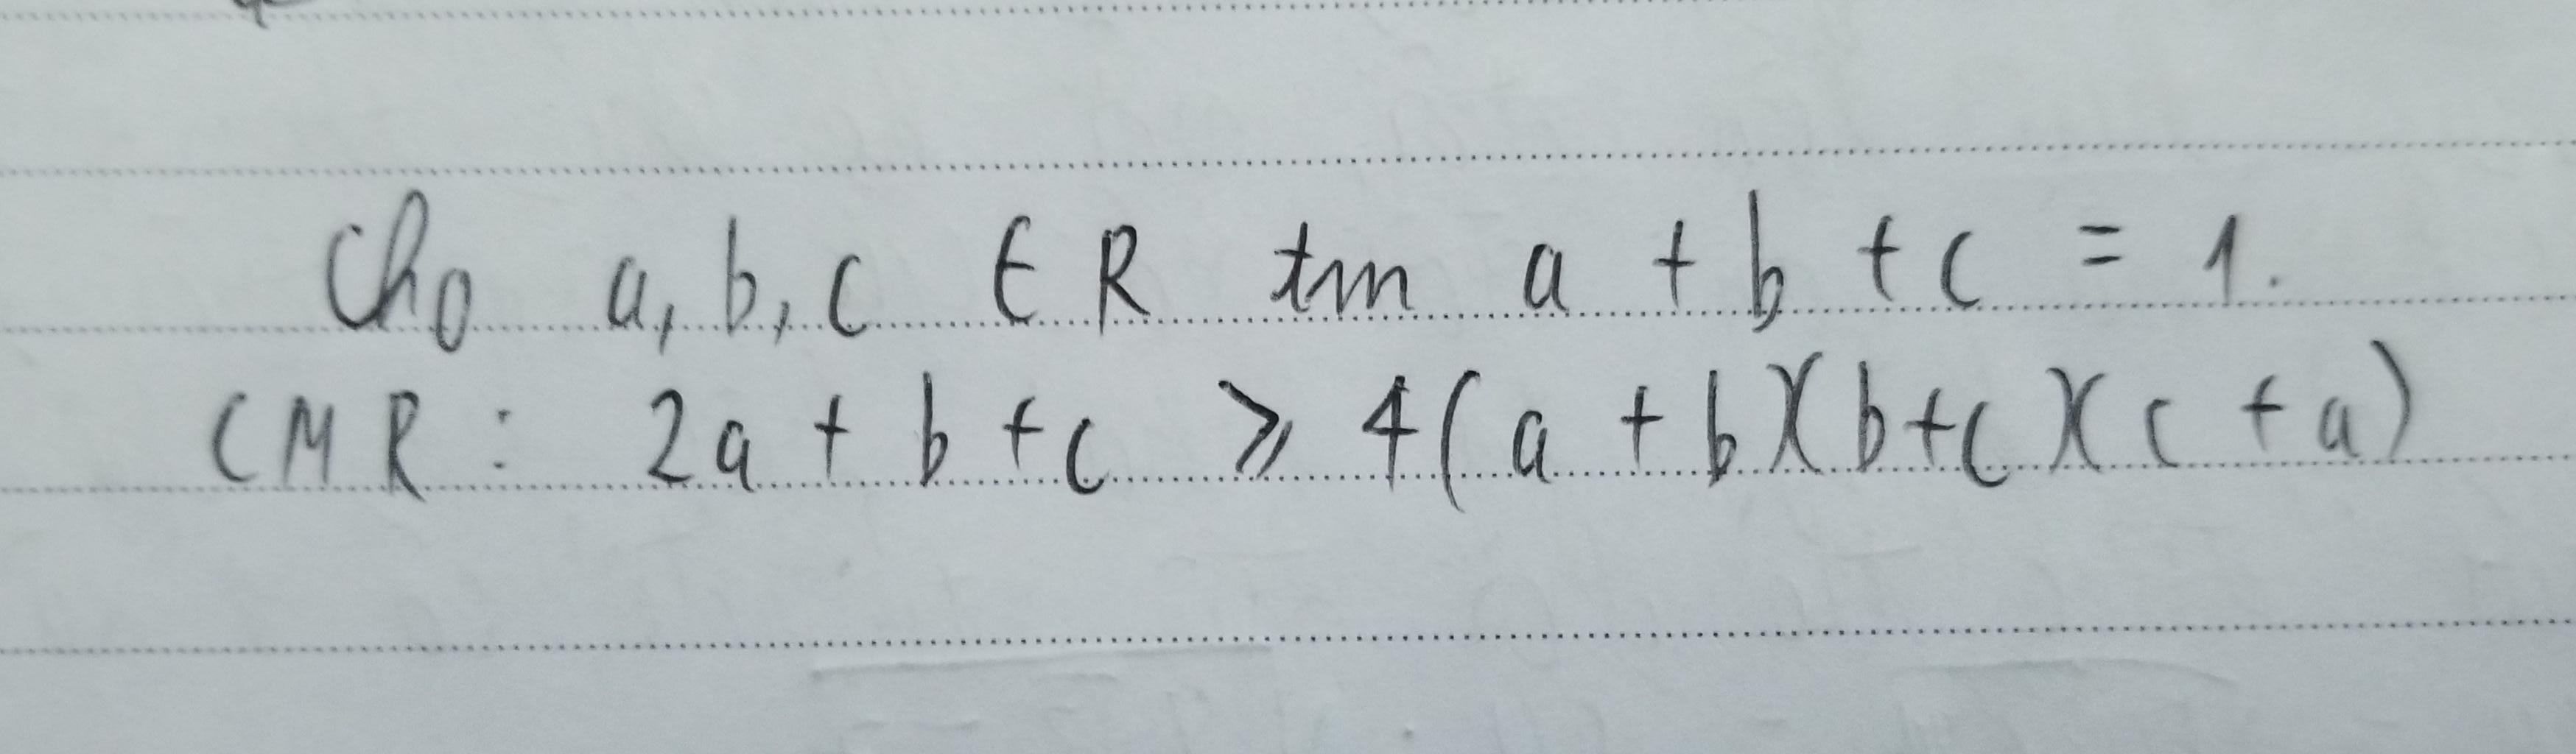 Cho a, b, c ∈ R tm a + b + c = 1.
CMR : 2a + b + c ⩾ 4(a + b)(b+c)(c + a)